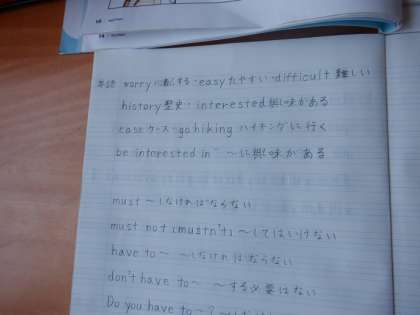 英語 worry 心配する・easy たやすい・difficult 難しい
history 歴史・interested 興味がある
case ケース・go hiking ハイキングに行く
be interested in ～に興味がある
must ～しなければならない
must not (mustn't) ～してはいけない
have to～ ～しなければならない
don't have to～ ～する必要はない
Do you have to～?